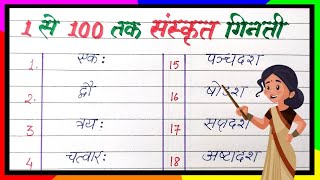 1 से 100 तक संस्कृत गिनती
1. एकः 15 पञ्चदश
2. द्वौ 16 षोडश
3 त्रयः 17 सप्तदश
4 चत्वारः 18 अष्टादश